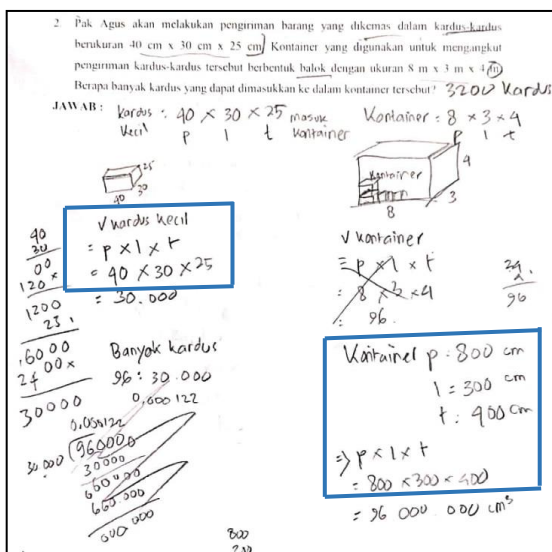 2. Pak Agus akan melakukan pengiriman barang yang dikemas dalam kardus-kardus
berukuran 40 cm x 30 cm x 25 cm. Kontainer yang digunakan untuk mengangkut
pengiriman kardus-kardus tersebut berbentuk balok dengan ukuran 8 m x 3 m x 4 m
Berapa banyak kardus yang dapat dimasukkan ke dalam kontainer tersebut? 3200 kardus
JAWAB : kardus : 40 × 30 × 25 masuk Kontainer = 8 × 3 × 4
kecil p l t kontainer p l t
25
30
40
Kontainer
4
3
8
V kardus kecil
= p × l × t
= 40 × 30 × 25
= 30.000
40
30
00
120 ×
1200
25
6000
2400×
30000
V kontainer
= p × l × t
= 8 × 3 × 4
= 96
24
96
Banyak kardus
96 : 30.000
30.000
960000
30000
660000
660.000
Kontainer p : 800 cm
l = 300 cm
t : 400 cm
=> p × l × t
= 800 × 300 × 400
= 96 000 000 cm³
800